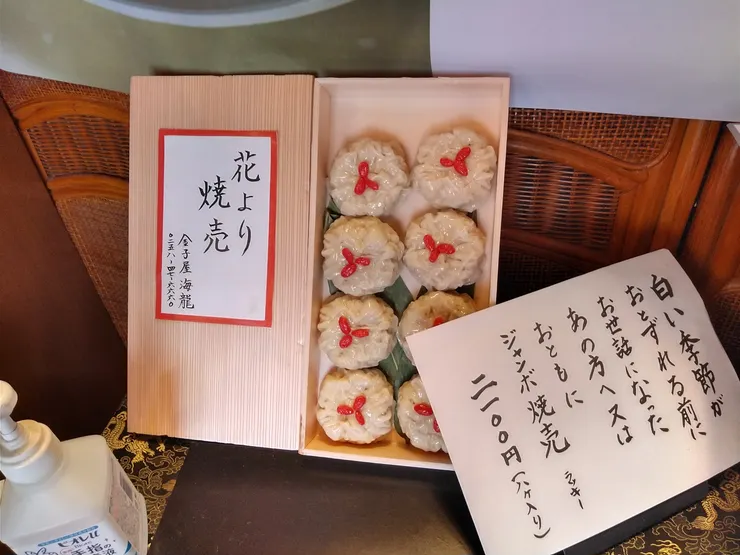 花より
焼売
金子屋 海龍
〇二五八-四七-六六六〇
白い季節が
おとずれる前に
お世話になった
あの方へ又は
おともに
ジャンボ焼売
ラッキー
二一〇〇円(八ヶ入り)
ビオレu
手指の